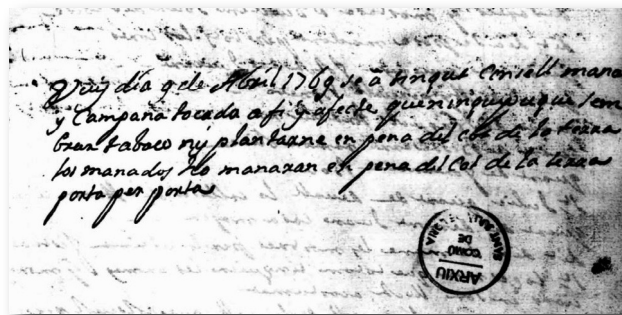 Vuy dia 9 de Abril 1769 se á tingut Consell mana
y Campana tocada a fi y afecte que ningu puga sem
brar tabaco ny plantarne en pena del cot de la terra
los manados ho manaran en pena del Cot de la terra
porta per porta
ARXIU
COMÚ
DE